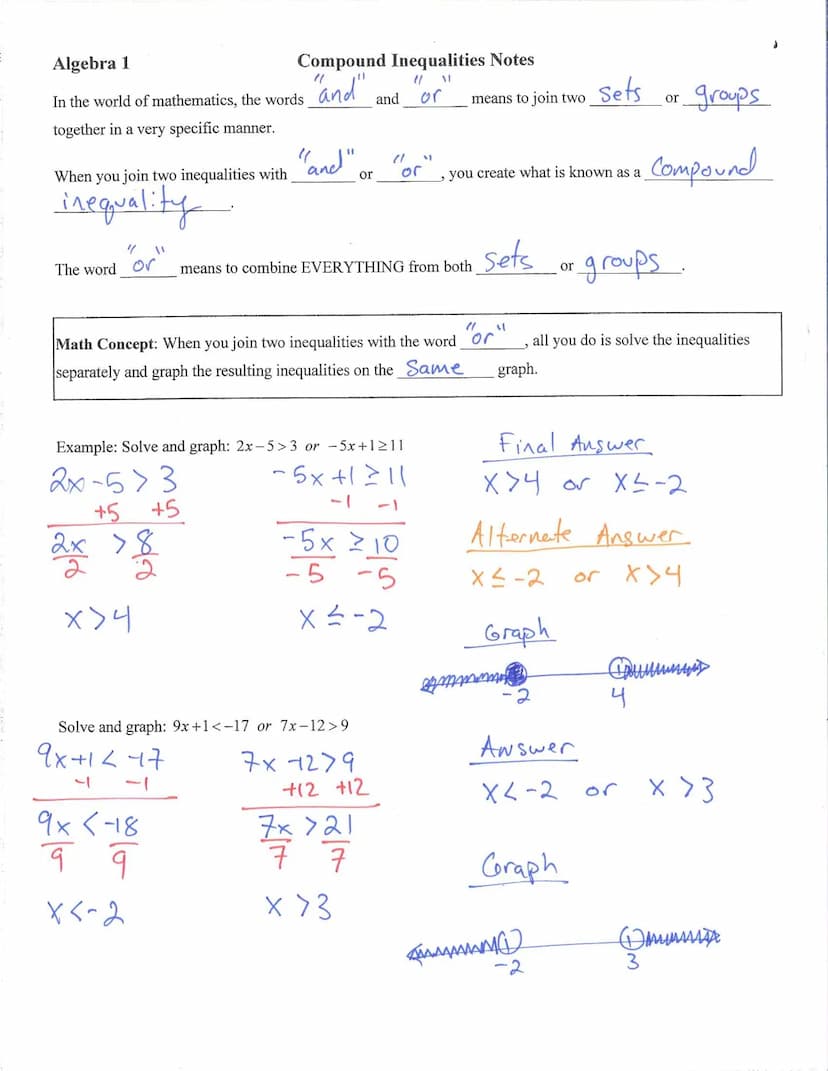 Algebra 1 Compound Inequalities Notes
In the world of mathematics, the words "and" and "or" means to join two sets or groups
together in a very specific manner.
When you join two inequalities with "and" or "or", you create what is known as a Compound
inequality.
The word "or" means to combine EVERYTHING from both sets or groups.
Math Concept: When you join two inequalities with the word "or", all you do is solve the inequalities
separately and graph the resulting inequalities on the Same graph.
Example: Solve and graph: 2x-5>3 or -5x+1≥11
Final Answer
2x-5>3 -5x+1≥11 x>4 or x≤-2
+5 +5 -1 -1
Alternate Answer
2x >8 -5x ≥10
2 2 -5 -5 x≤-2 or x>4
x>4 x≤-2
Graph
-2 4
Solve and graph: 9x+1<-17 or 7x-12>9
9x+1<-17 7x-12>9 Answer
-1 -1 +12 +12 x<-2 or x>3
9x<-18 7x>21
9 9 7 7 Graph
x<-2 x>3
-2 3